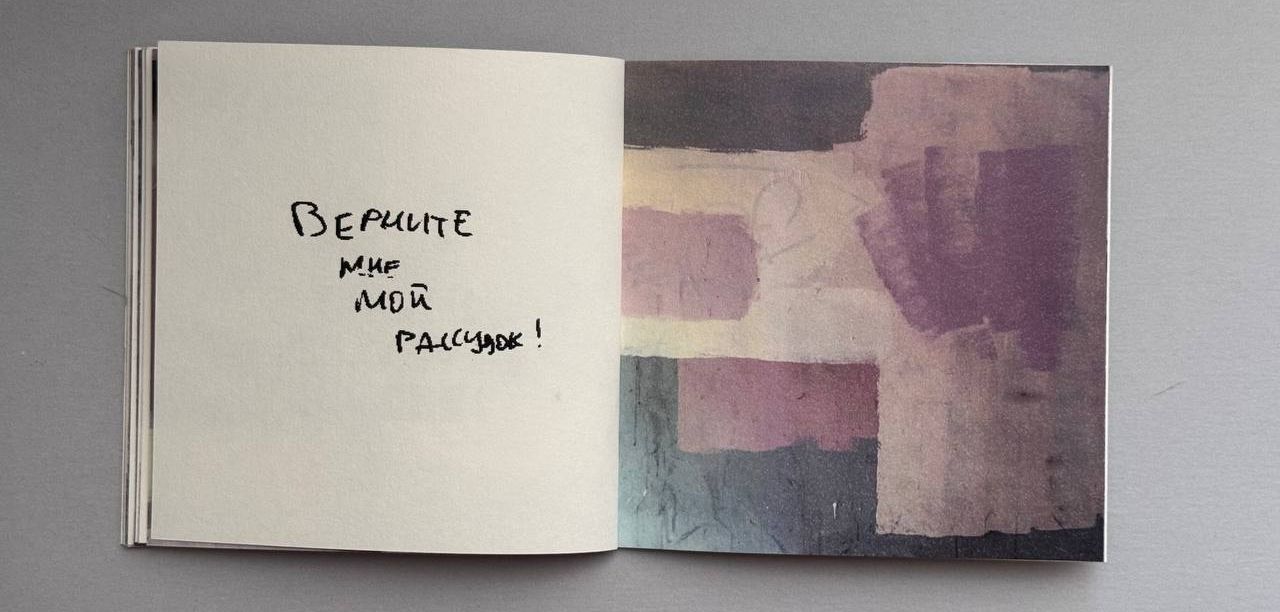 Верните
мне
мой
рассудок!